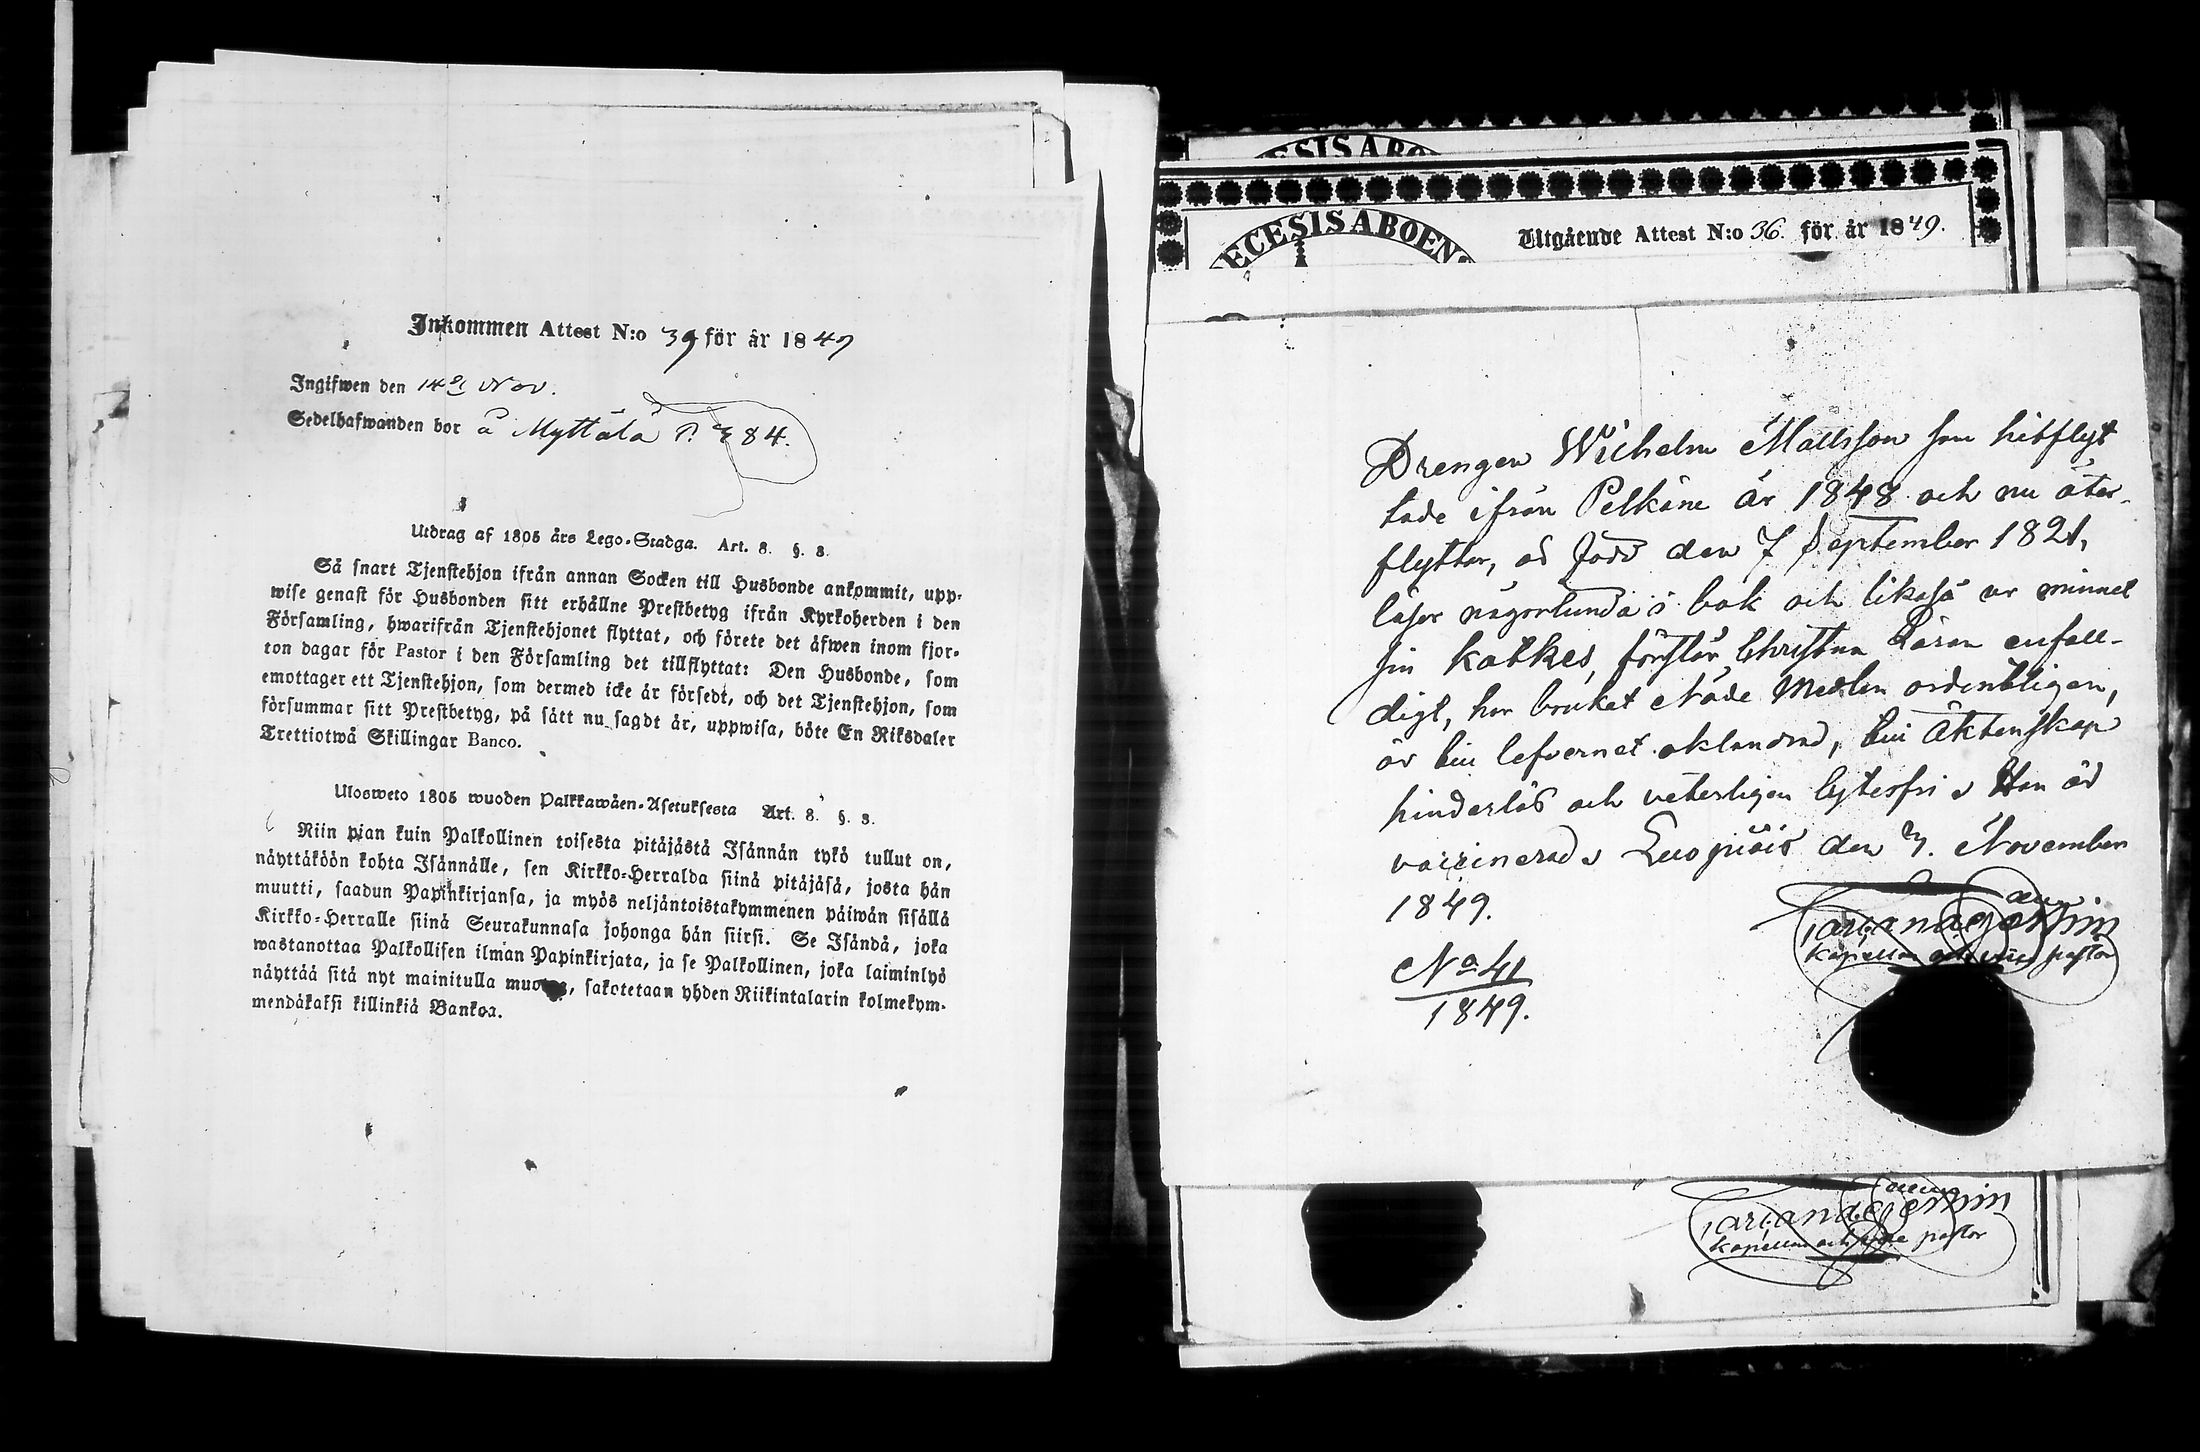 Inkommen Attest N:o 39 för år 1849
Ingifwen den 14de Nov.
Sedelhafwanden bor å Myttälä P. 84.
Utdrag af 1805 års Lego-Stadga. Art. 8. §. 8.
Så snart Tjenstehjon ifrån annan Socken till Husbonde ankommit, upp-
wise genast för Husbonden sitt erhållne Prestbetyg ifrån Kyrkoherden i den
Församling, hwarifrån Tjenstehjonet flyttat, och förete det äfwen inom fjor-
ton dagar för Pastor i den Församling det tillflyttat: Den Husbonde, som
emottager ett Tjenstehjon, som dermed icke är försedt, och det Tjenstehjon, som
försummar sitt Prestbetyg, på sätt nu sagdt är, uppwisa, böte En Riksdaler
Trettiotwå Skillingar Banco.
Ulosweto 1805 wuoden Palkkawäen-Asetuksesta Art. 8. §. 8.
Niin pian kuin Palkollinen toisesta pitäjästä Isännän tykö tullut on,
näyttäköön kohta Isännälle, sen Kirkko-Herralda siinä pitäjäsä, josta hän
muutti, saadun Papinkirjansa, ja myös neljäntoistakymmenen päiwän sisällä
Kirkko-Herralle siinä Seurakunnasa johonga hän siirsi. Se Isändä, joka
wastanottaa Palkollisen ilman Papinkirjata, ja se Palkollinen, joka laiminlyö
näyttää sitä nyt mainitulla muotoa, sakotetaan yhden Riikintalarin kolmekym-
mendäkaksi killinkiä Bankoa.
ECESIS ABO
ECESIS ABOEN
Utgående Attest N:o 36. för år 1849.
Drengen Wilhelm Mattsson som hitflyt
tade ifrån Pelkäne år 1848 och nu åter-
flyttar, är född den 7 September 1821,
läser någorlunda i bok och likaså ur minnet
sin katkes, förstår Christna Läran enfall-
digt, har brukat Nåde Medlen ordenteligen,
är till lefvernet oklandrad, till Äktenskap
hinderlös och veterligen lytesfri. Han är
vaccinerad. Luopiois den 7. November
1849.
Kapellan och vice pastor
No 41
1849.
Kapellan och vice pastor